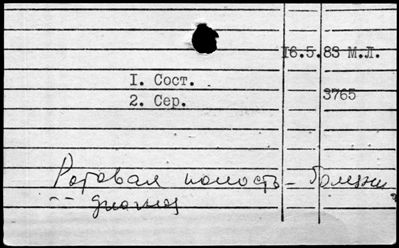 16.5.83 М.Л.
1. Сост.
2. Сер. 3765
Ротовая полость - болезни,
-- диагноз